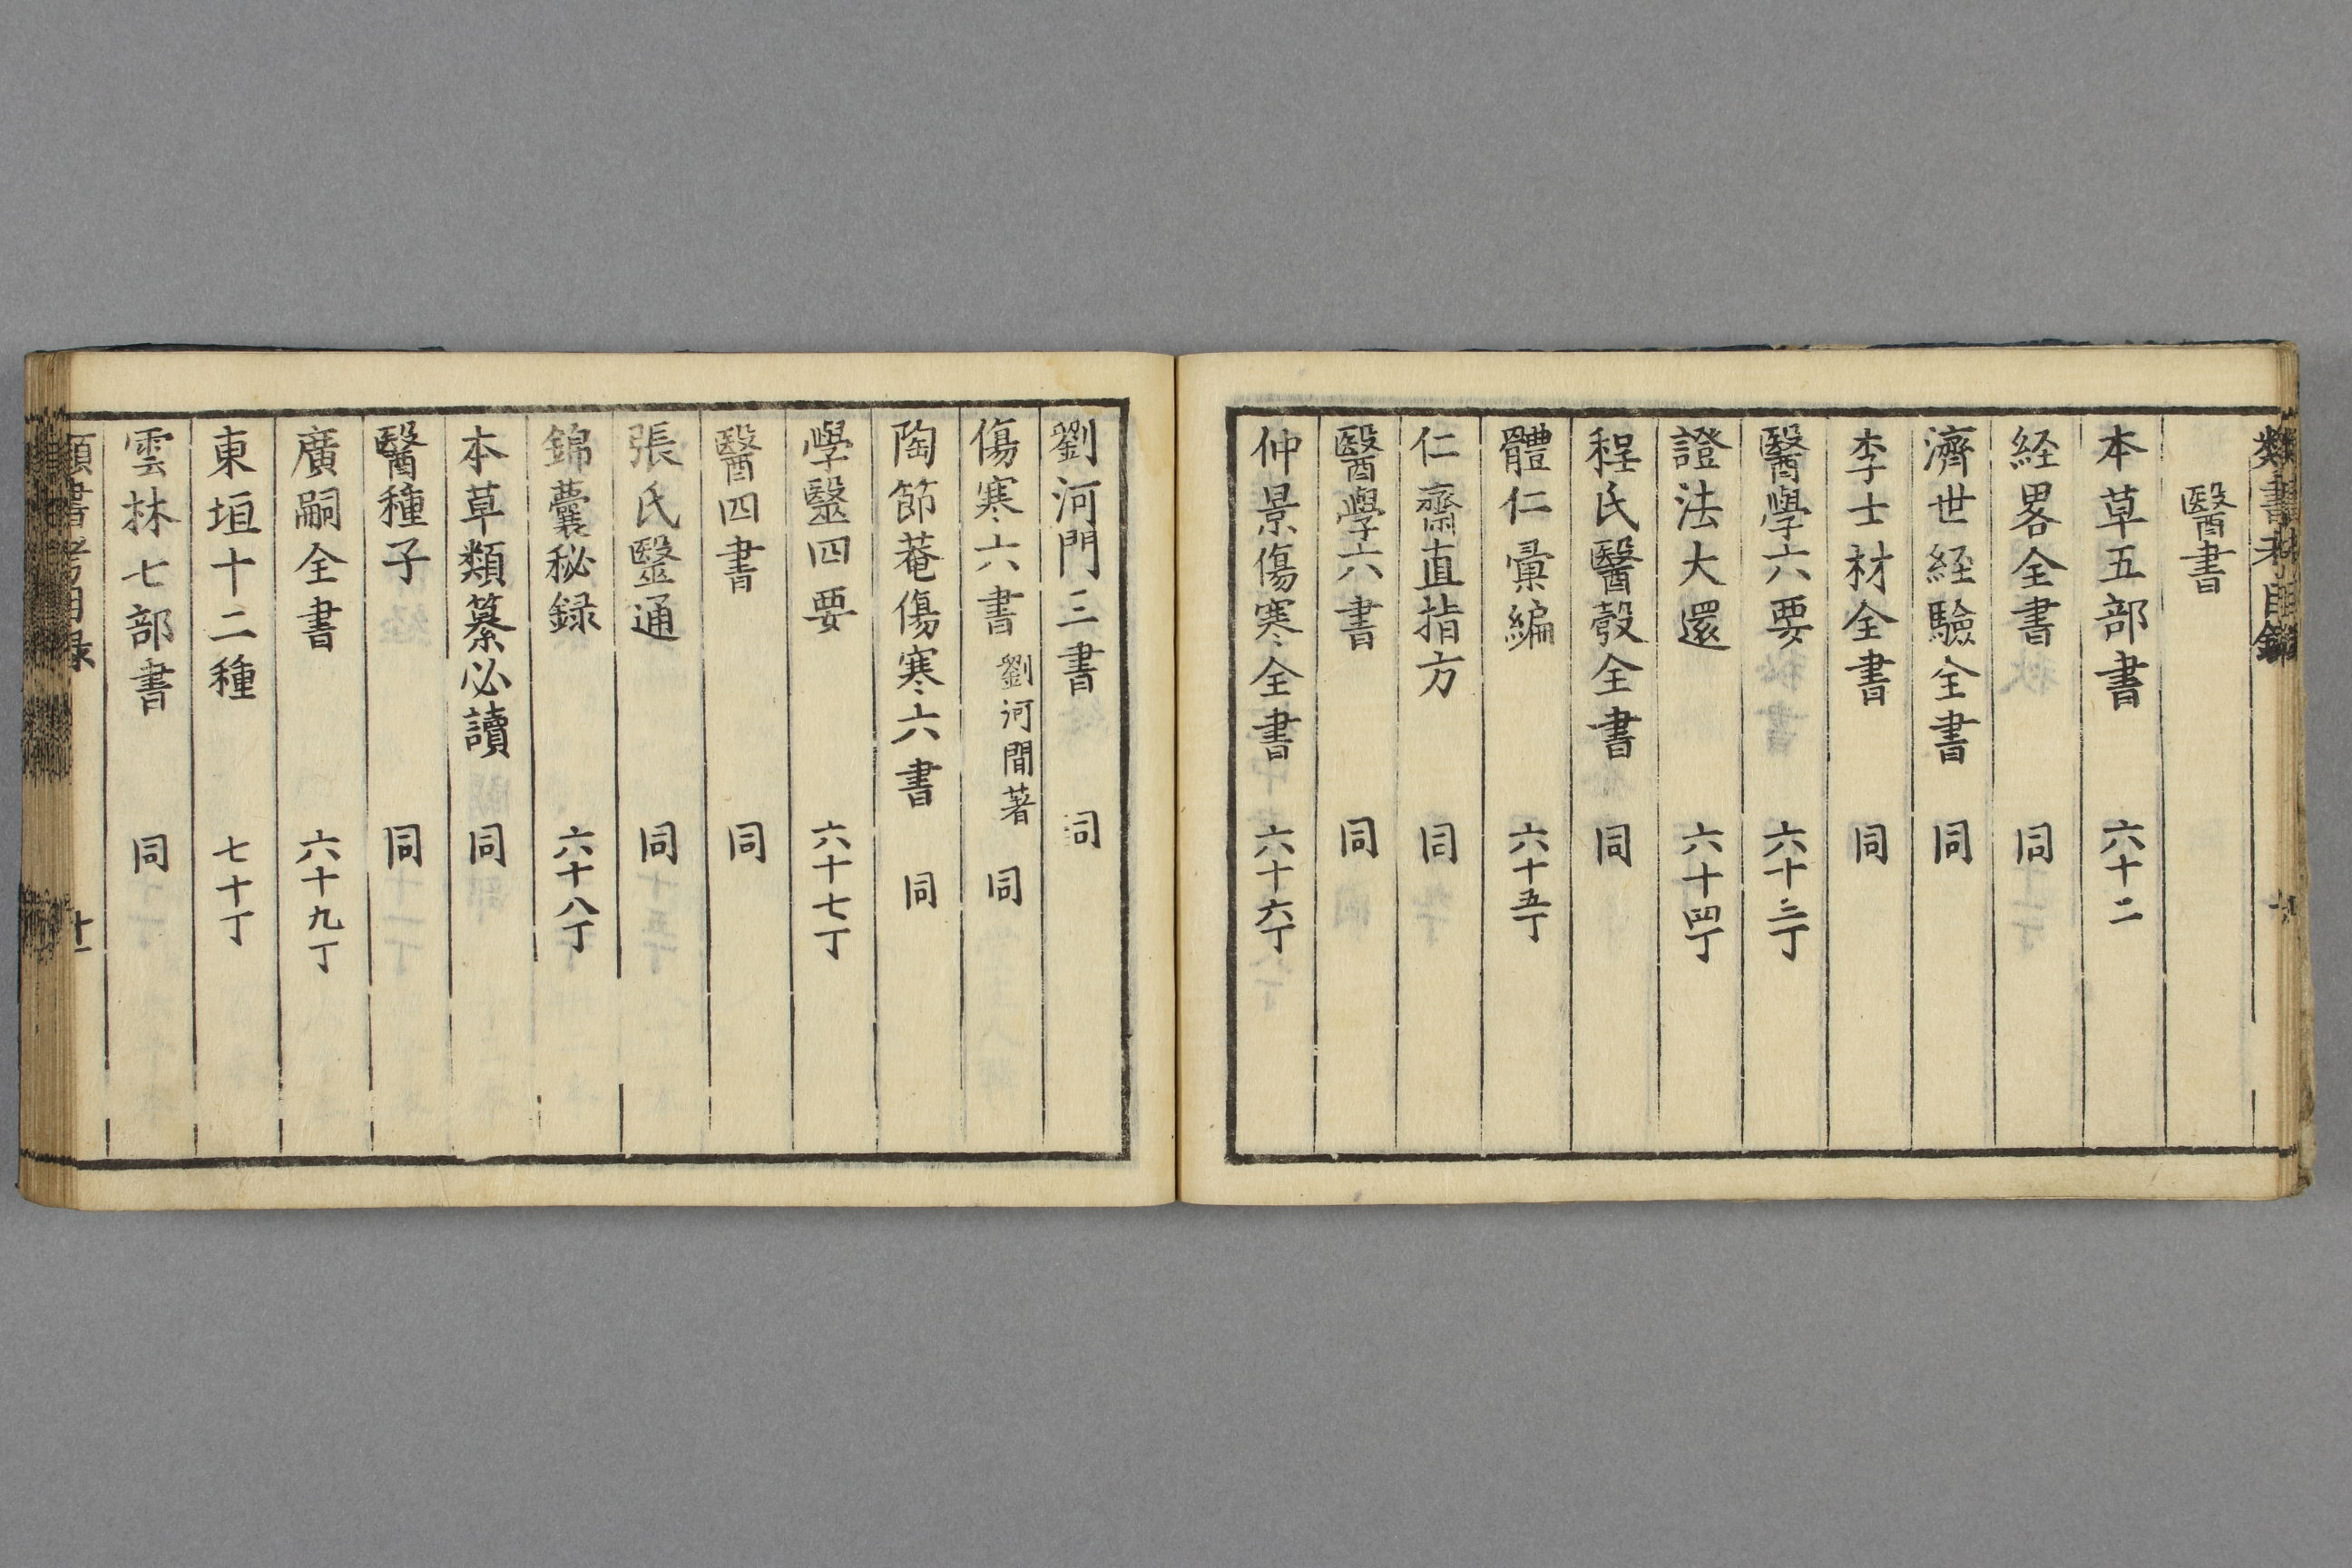 醫書
本草五部書 六十二
経畧全書 同
濟世経驗全書 同
李士材全書 同
醫學六要 六十三丁
證法大還 六十四丁
程氏醫彀全書 同
體仁彙編 六十五丁
仁齋直指方 同
醫學六書 同
仲景傷寒全書 六十六丁
劉河門三書 同
傷寒六書 劉河間著 同
陶節菴傷寒六書 同
學毉四要 六十七丁
醫四書 同
張氏毉通 同
錦囊秘録 六十八丁
本草類纂必讀 同
醫種子 同
廣嗣全書 六十九丁
東垣十二種 七十丁
雲林七部書 同
類書考目録 十一